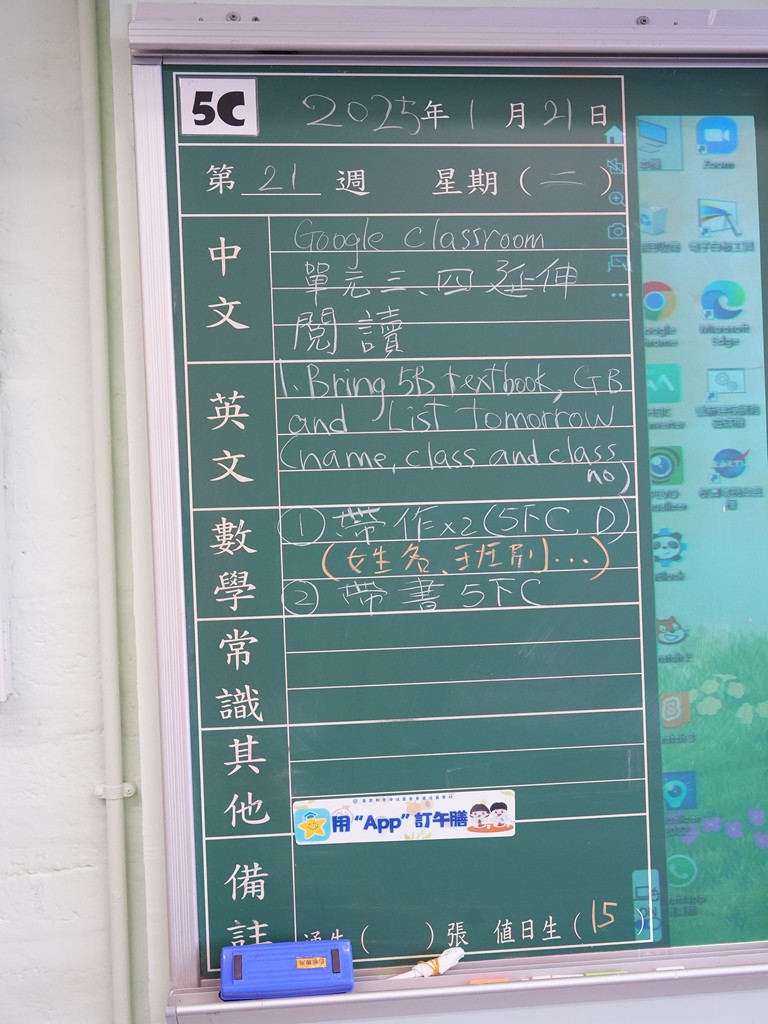 5C 2025年1月21日
第 21 週 星期(二)
中文
Google Classroom
單元三、四延伸
閱讀
英文
1. Bring 5B textbook, GB
and List tomorrow
(name, class and class
no)
數學
① 帶作x2(5下C, D)
(姓名、班別...)
② 帶書5下C
常識
其他
用“App”訂午膳
備註
( )張 值日生(15)
Zoom
Microsoft
Edge